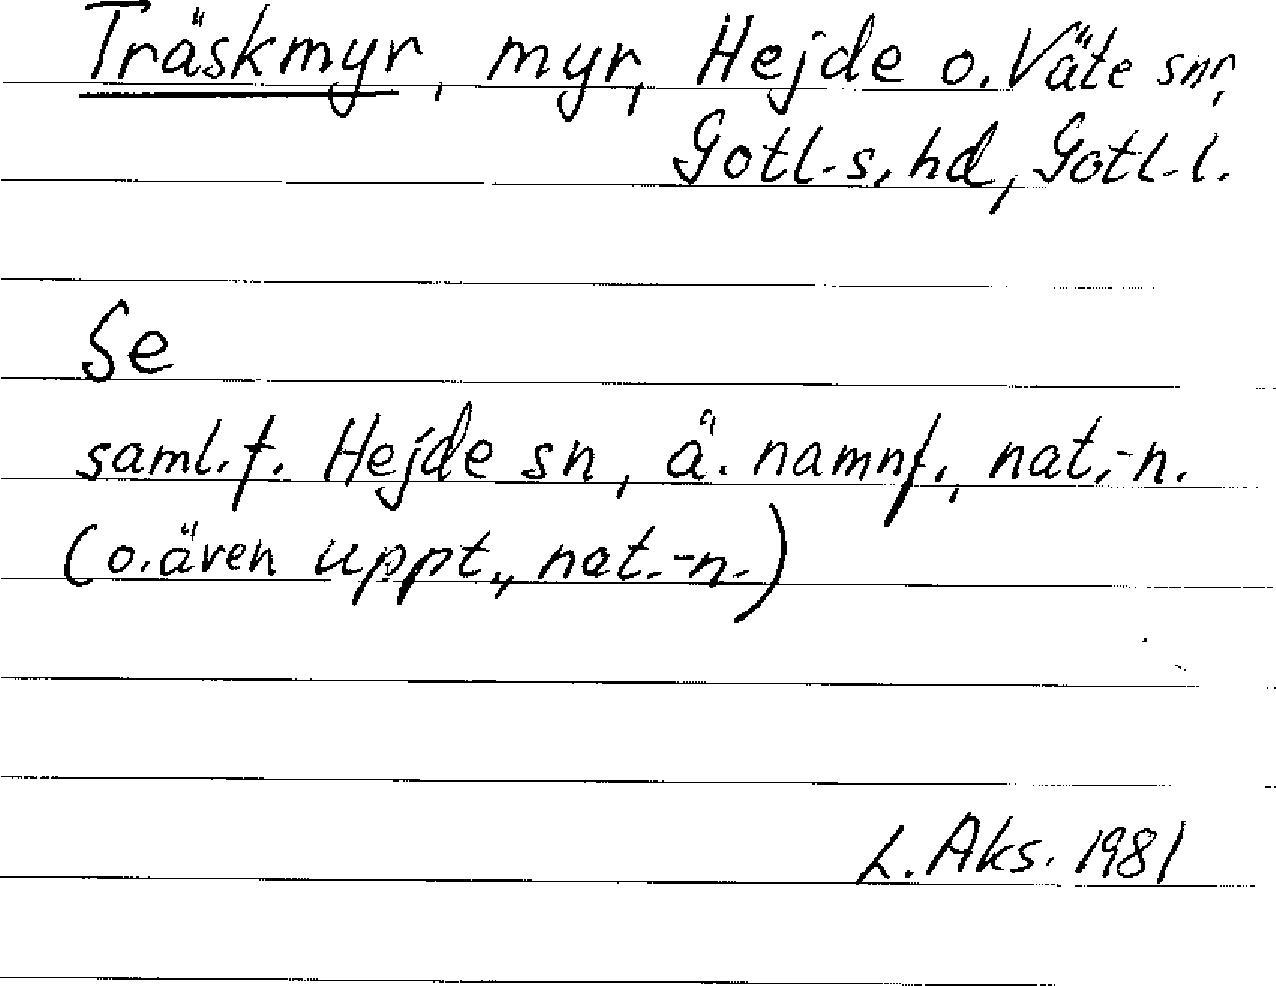 Träskmyr, myr, Hejde o. Väte snr,
Gotl. s. hd, Gotl. l.
Se
saml. f. Hejde sn, ä. namnf., nat.-n.
(o. även uppt., nat.-n.)
L. Aks. 1981